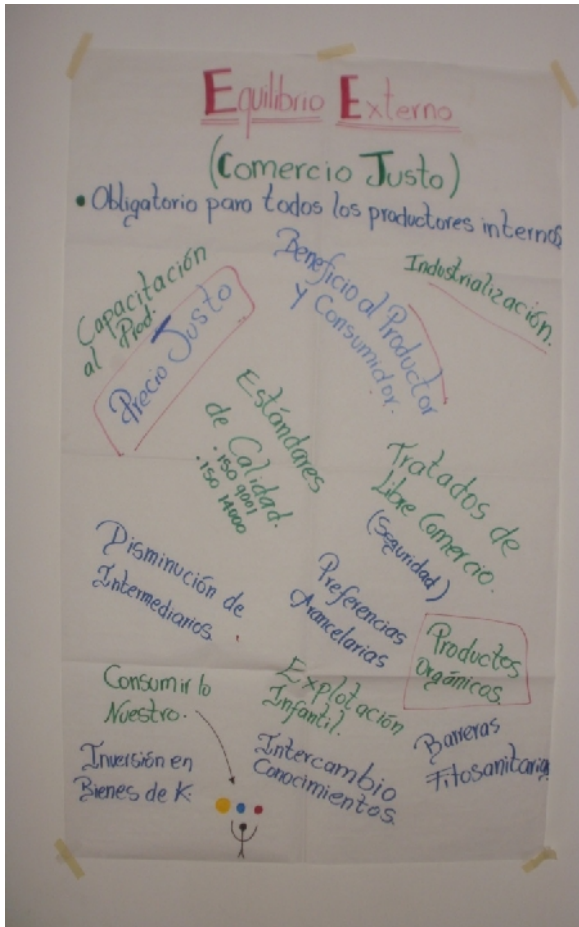 Equilibrio Externo
(Comercio Justo)
• Obligatorio para todos los productores internos
Capacitación
al Prod.
Precio Justo
Beneficio al Productor
y Consumidor.
Industrialización.
Estándares
de Calidad.
. ISO 9001
. ISO 14000
Tratados de
Libre Comercio.
(Seguridad)
Disminución de
Intermediarios.
Preferencias
Arancelarias
Productos
Orgánicos.
Consumir lo
Nuestro.
Explotación
Infantil.
Barreras
Fitosanitarias
Inversión en
Bienes de K.
Intercambio
Conocimientos.